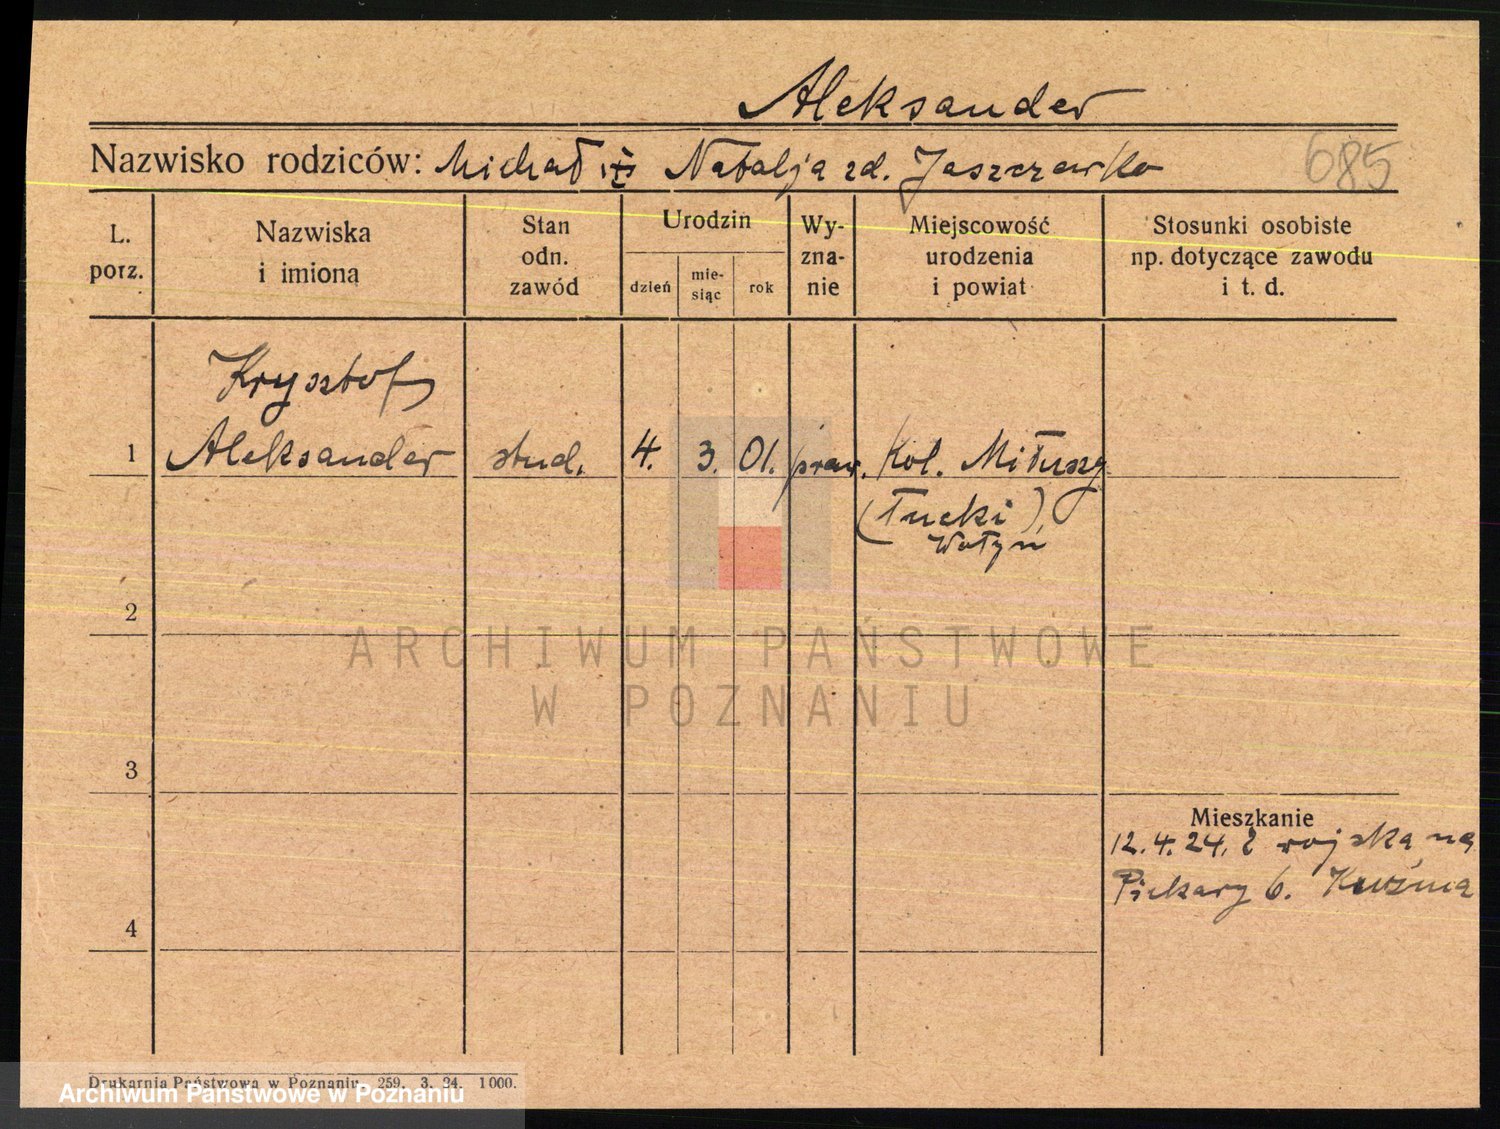 Aleksander
Nazwisko rodziców: Michał i Natalja zd. Jaszczewko
685
L. porz.
Nazwiska i imiona
Stan odn. zawód
Urodzin
dzień
mie-siąc
rok
Wy-zna-nie
Miejscowość urodzenia i powiat
Stosunki osobiste np. dotyczące zawodu i t. d.
Krysztof
1 Aleksander stud. 4. 3. 01. praw. Kol. Miłuszy
(Łucki)
Wołyń
2
ARCHIWUM PAŃSTWOWE
W POZNANIU
3
Mieszkanie
12.4.24. z wojska na
Piekary 6. Kuźma
4
Drukarnia Państwowa w Poznaniu. 259. 3. 24. 1000.
Archiwum Państwowe w Poznaniu